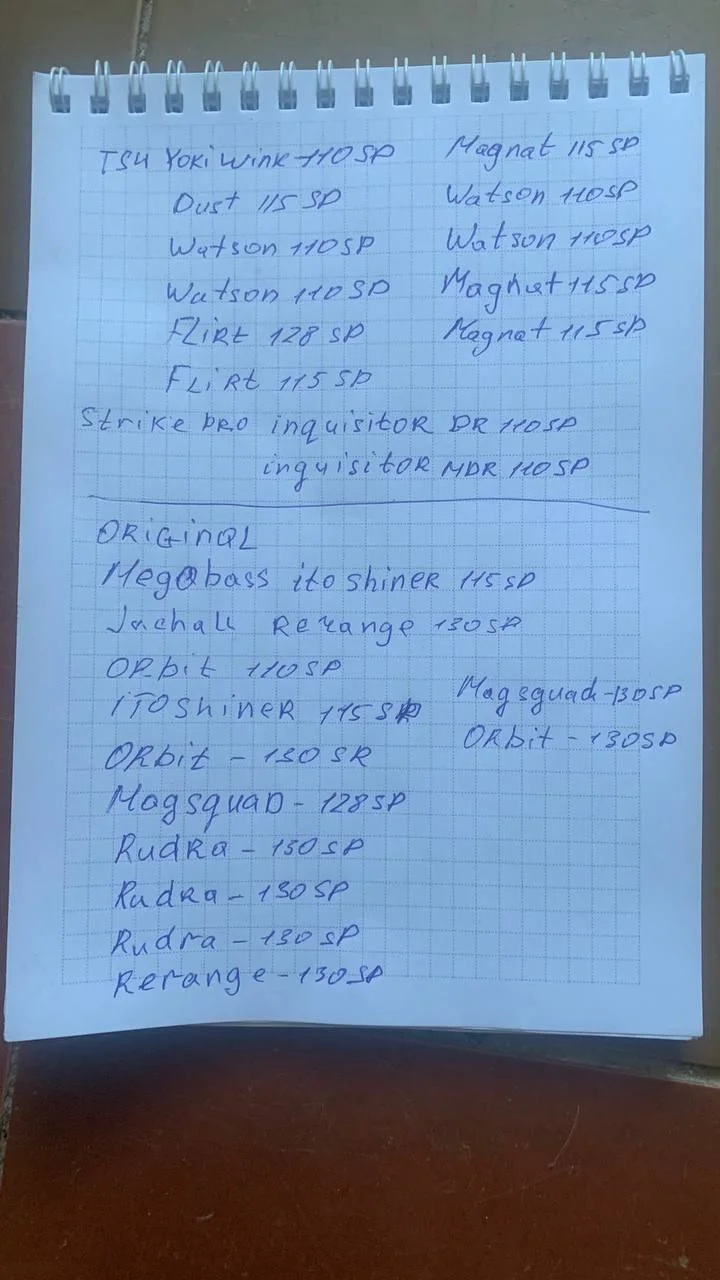 TSU YOKI WINK-110SP
Dust 115 SP
Watson 110SP
Watson 110SP
FLIRt 128 SP
FLIRt 115 SP
Magnat 115 SP
Watson 110SP
Watson 110SP
Magnat 115SP
Magnat 115SP
Strike PRO inquisitOR DR 110SP
inquisitOR MDR 110SP
ORiGinaL
Megabass ito shiner 115SP
Jachall Rerange 130SP
ORbit 110SP
ITOShineR 115SP
ORbit - 130SR
MagsquaD - 128SP
RudRa - 130SP
RudRa - 130SP
Rudra - 130SP
Rerange - 130SP
Magsquad-130SP
ORbit - 130SP